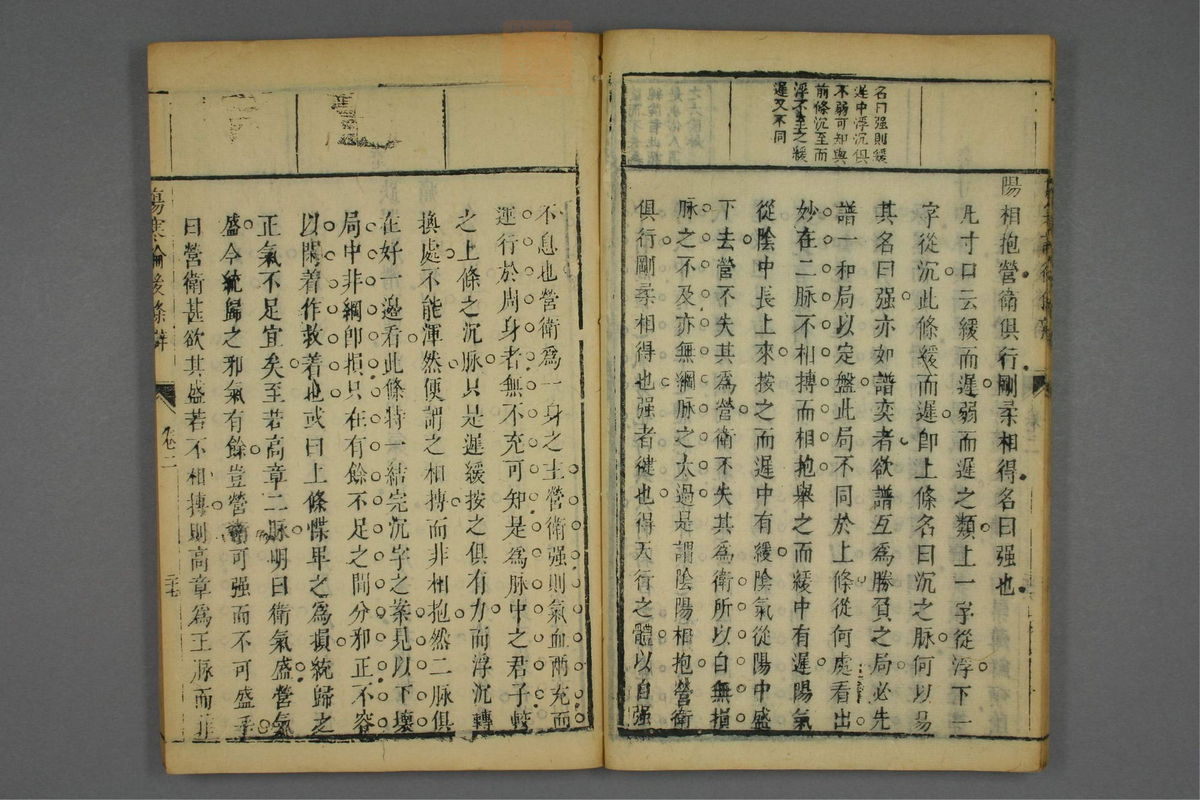 名曰强則緩
遲中浮沉俱
不弱可知與
前條沉至而
浮不至之緩
遲又不同
陽相抱營衛俱行剛柔相得名曰强也
凡寸口云緩而遲弱而遲之類上一字從浮下一
字從沉此條緩而遲卽上條名曰沉之脉何以易
其名曰强亦如譜奕者欲譜互爲勝負之局必先
譜一和局以定盤此局不同於上條從何處看出
妙在二脉不相搏而相抱舉之而緩中有遲陽氣
從陰中長上來按之而遲中有緩陰氣從陽中盛
下去營不失其爲營衛不失其爲衛所以白無損
脉之不及亦無綱脉之太過是謂陰陽相抱營衛
俱行剛柔相得也强者健也得天行之體以自强
不息也營衛爲一身之主營衛强則氣血兩充而
運行於周身者無不充可知是爲脉中之君子較
之上條之沉脉只是遲緩按之俱有力而浮沉轉
換處不能渾然便謂之相搏而非相抱然二脉俱
在好一邊看此條特一結完沉字之案見以下壞
局中非綱卽損只在有餘不足之間分邪正不容
以閑着作救着也或曰上條惵卑之爲損統歸之
正氣不足宜矣至若高章二脉明曰衛氣盛營氣
盛今統歸之邪氣有餘豈營衛可强而不可盛乎
曰營衛甚欲其盛若不相搏則高章爲王脉而非
傷寒論後條辨
卷二
二十七